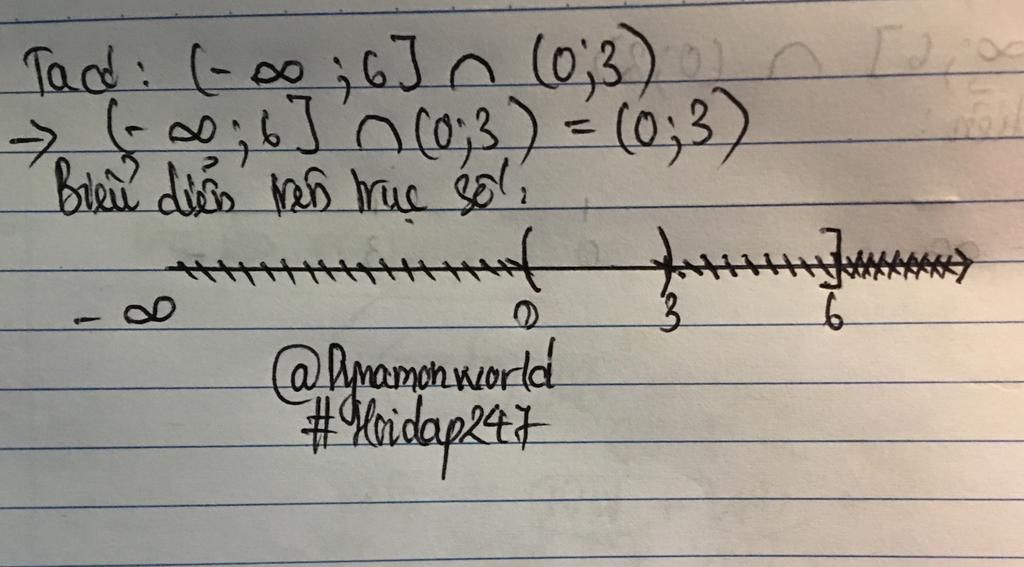 Ta có: (-∞;6] ∩ (0;3)
→ (-∞;6] ∩ (0;3) = (0;3)
Biểu diễn trên trục số:
-∞ 0 3 6
@Dynamonworld
#Hoidap247